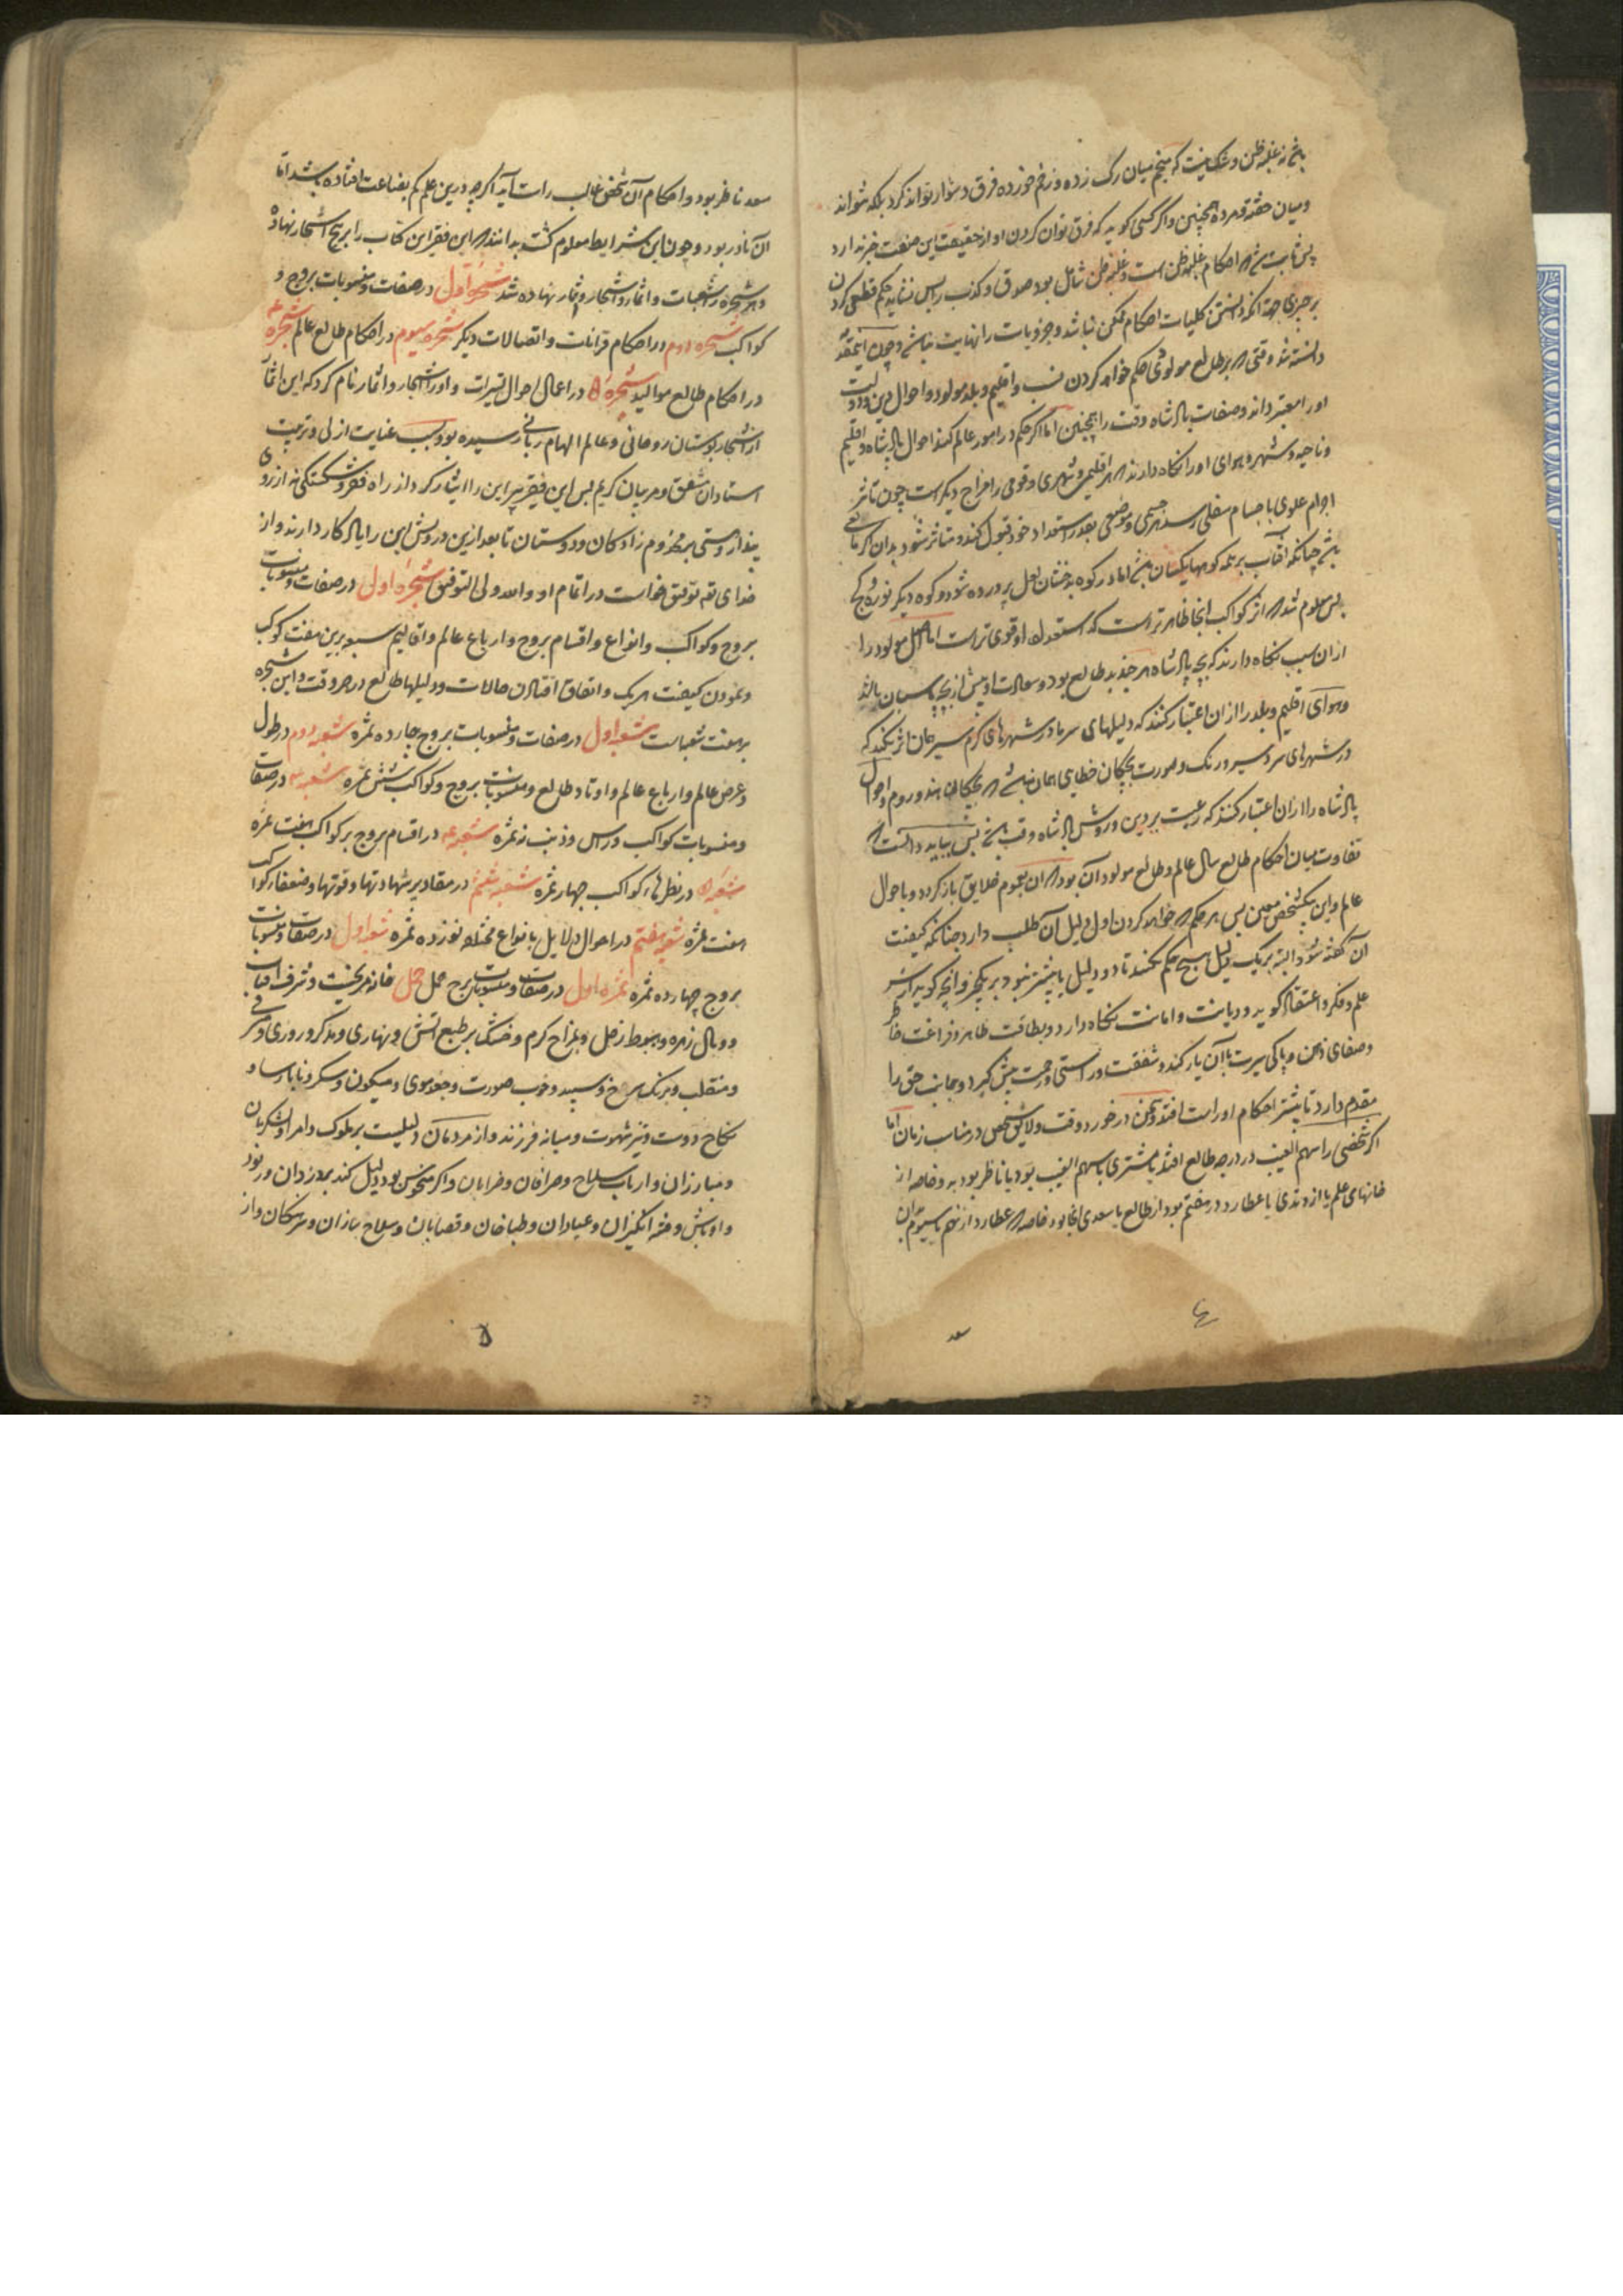 باشد نه غلبه ظن و شک نیست که منجم میان رک زده و زخم خورده فرق دشوار تواند کرد بلکه نتواند
و میان خفته و مرده همچنین و اگر کسی کوید که فرق توان کردن او از حقیقت این صنعت خبر ندارد
پس ثابت شد که احکام غلبه ظن است و غلبه ظن شامل بود صدق و کذب را پس نشاید حکم قطعی کردن
بر چیزی جهة آنکه دانستن کلیات احکام ممکن نباشد و جزویات را نهایت نباشد و چون اینقدر
دانسته شد وقتی که بر طالع مولودی حکم خواهد کردن نسب و اقلیم و بلد مولود و احوال دین و دولت
او را معتبر داند و صفات پادشاه وقت را همچنین اما اگر حکم در امور عالم کند احوال پادشاه و اقلیم
و ناحیه و شهر و هوای او را نکاه دارند که هر اقلیمی و شهری و قومی را مزاج دیکر است چون تاثیر
اجرام علوی باجسام سفلی رسد هر جسمی و موضعی بقدر استعداد خود قبول کند و متاثر شود بدان
باشد چنانکه آفتاب بر همه کوهها یکسان اما در کوه بدخشان لعل پرورده شود و کوه دیکر نوره و کچ
پس معلوم شد که اثر کواکب آنجا ظاهرتر است که استعداد او قوی‌تر است اما اصل مولود را
از آن سبب نکاه دارند که بچه پادشاه هر چند بد طالع بود و سعادت او بیش از بچه پاسبان باشد
و هوای اقلیم و بلد را از آن اعتبار کنند که دلیلهای سرما در شهرهای کرم سیر همان اثر نکند که
در شهرهای سردسیر و رنک و صورت بچکان خطایی همان نباشد که بچکان هند و روم و احوال
پادشاه را از آن اعتبار کنند که رعیت بر دین و روش پادشاه وقت باشد پس بباید دانست که
تفاوت میان احکام طالع سال عالم و طالع مولود آن بود که آن بعموم خلایق باز کردد و باحوال
عالم و این بیکشخص معین پس هر حکم که خواهد کردن اول دلیل آن طلب دارد چنانکه کیفیت
آن کفته شود البته بر یک دلیل هیچ حکم نکنند تا دو دلیل یا بیشتر نبود بر یکچیز و آنچه کوید از سر
علم و فکر و اعتقاد کوید و دیانت و امانت نکاه دارد و بطاقت ظاهر و فراغت خاطر
و صفای ذهن و پاکی سیرت با آن یار کند و شفقت و راستی و رحمت پیش کیرد و جانب حق را
مقدم دارد تا بیشتر احکام او راست افتد و سخن در خورد وقت و لایق شخص و مناسب زمان اما
اکر شخصی را سهم الغیب در درجه طالع افتد یا مشتری با سهم الغیب بود یا ناظر بود به و خاصه از
خانهای علم یا از وتدی یا عطارد در هفتم بود از طالع یا سعدی آنجا بود خاصه که عطارد از نهم یا سیوم بآن
سعد
سعد ناظر بود و احکام آن شخص غالب راست آید اکرچه درین علم کم بضاعت افتاده باشد اما
آن نادر بود و چون این شرایط معلوم کشت بدانند که این فقیر این کتاب را بر پنج اشجار نهاده
و هر شجره را شعبات و اثمار و اشجار و ثمار نهاده شد شجره اول در صفات و منسوبات بروج و
کواکب شجره دوم در احکام قرانات و اتصالات دیکر شجره سیوم در احکام طالع عالم شجره ۴
در احکام طالع موالید شجره ۵ در اعمال احوال تسیرات و او را اشجار و اثمار نام کرد که این اثمار
از اشجار بوستان روحانی و عالم الهام ربانی رسیده بود بسبب عنایت ازلی و تربیت
استادان مشفق و مربیان کریم پس این فقیر پیر این را ایثار کرد از راه فقر و شکستکی نه از روی
پندار و مستی بر مخدوم زادکان و دوستان تا بعد ازین درویش این را یادکار دارند و از
خدای تعه توفیق خواست در اتمام او و الله ولی التوفیق شجره اول در صفات و منسوبات
بروج و کواکب و انواع و اقسام بروج و ارباع عالم و اقالیم سبعه برین هفت کوکب
و نمودن کیفیت هریک و اتفاق افتادن حالات و دلیلها طالع در هر وقت و این شجره
بر هفت شعبه است شعبه اول در صفات و منسوبات بروج چهارده ثمره شعبه دوم در طول
و عرض عالم و ارباع عالم و اوتاد طالع و منسوبات بروج و کواکب شش ثمره شعبه ۳ در صفات
و منسوبات کواکب و راس و ذنب نه ثمره شعبه ۴ در اقسام بروج بر کواکب هفت ثمره
شعبه ۵ در نظرهاء کواکب چهار ثمره شعبه ششم در مقادیر شهادتها و قوتها و ضعفهاء کواکب
هفت ثمره شعبه هفتم در احوال دلایل بانواع مختلف نوزده ثمره شعبه اول در صفات و منسوبات
بروج چهارده ثمره ثمره اول در صفات و منسوبات برج حمل حمل خانه مریخست و شرف آفتاب
و وبال زهره و هبوط زحل و بمزاج کرم و خشک بر طبع آتش و نهاری و مذکر و روزی و شرقی
و منقلب و برنک سرخ و سپید و خوب صورت و جعد موی و میکون و سکرو ناپارسا و
نکاح دوست و تیز شهوت و میانه فرزند و از مردمان دلیلست بر ملوک و امرا و لشکریان
و مبارزان و ارباب سلاح و صرافان و ضرابان و اکر منحوس بود دلیل کند بر دزدان و رنود
و اوباش و فتنه انکیزان و عیاران و طباخان و قصابان و سلاح سازان و سرهنکان و از